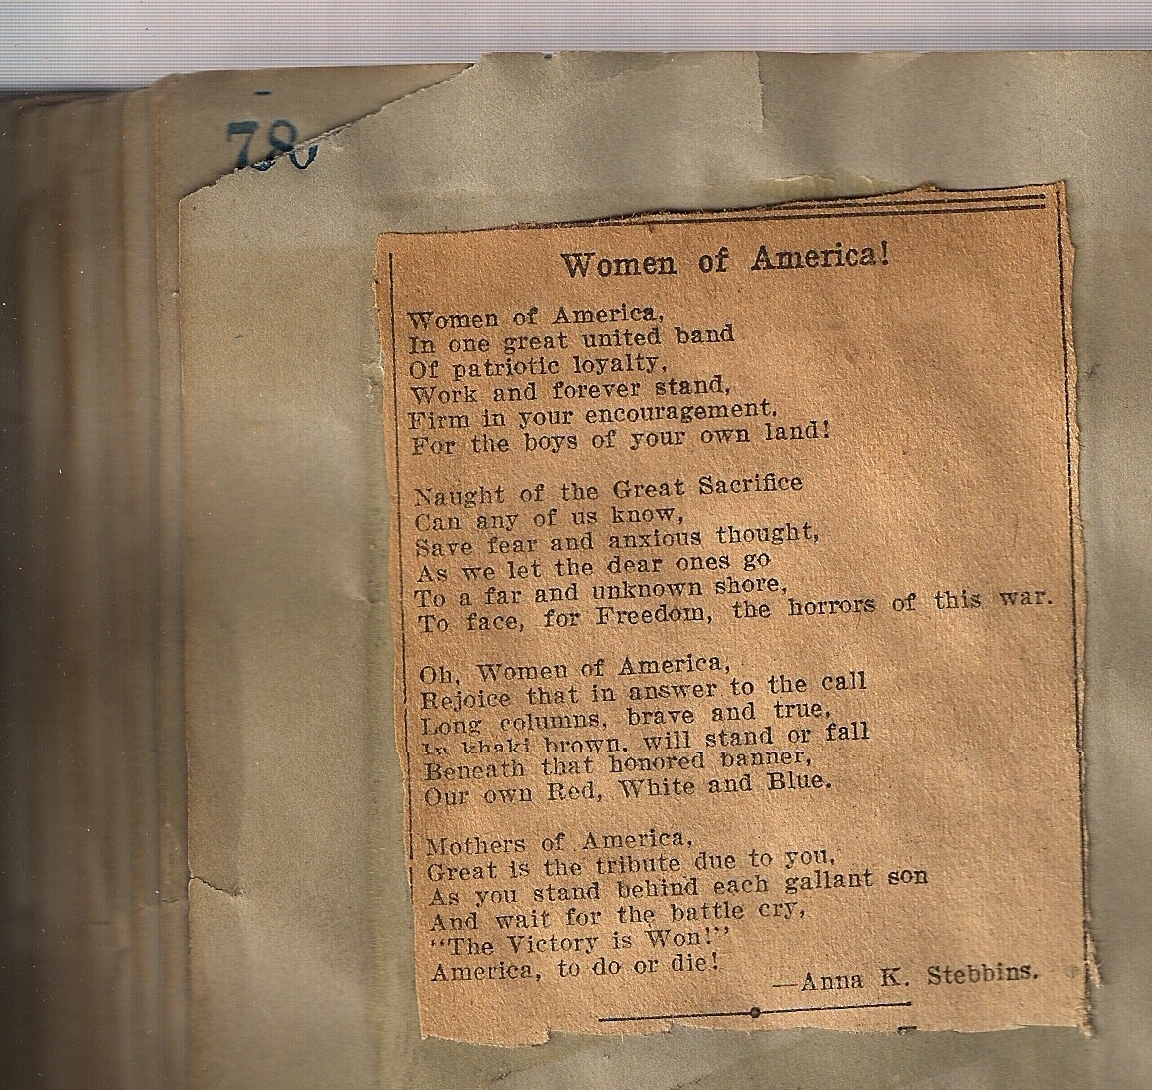 78
Women of America!
Women of America,
In one great united band
Of patriotic loyalty,
Work and forever stand,
Firm in your encouragement.
For the boys of your own land!
Naught of the Great Sacrifice
Can any of us know,
Save fear and anxious thought,
As we let the dear ones go
To a far and unknown shore,
To face, for Freedom, the horrors of this war.
Oh, Women of America,
Rejoice that in answer to the call
Long columns, brave and true,
In khaki brown. will stand or fall
Beneath that honored banner,
Our own Red, White and Blue.
Mothers of America,
Great is the tribute due to you,
As you stand behind each gallant son
And wait for the battle cry,
“The Victory is Won!”
America, to do or die!
—Anna K. Stebbins.